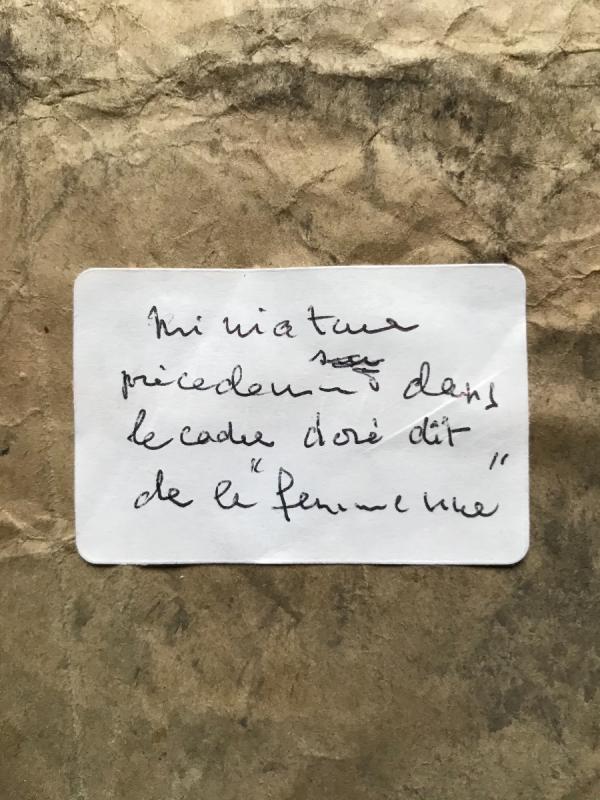 Miniature
précedemm dans
le cadre doré dit
de la "femme nue"